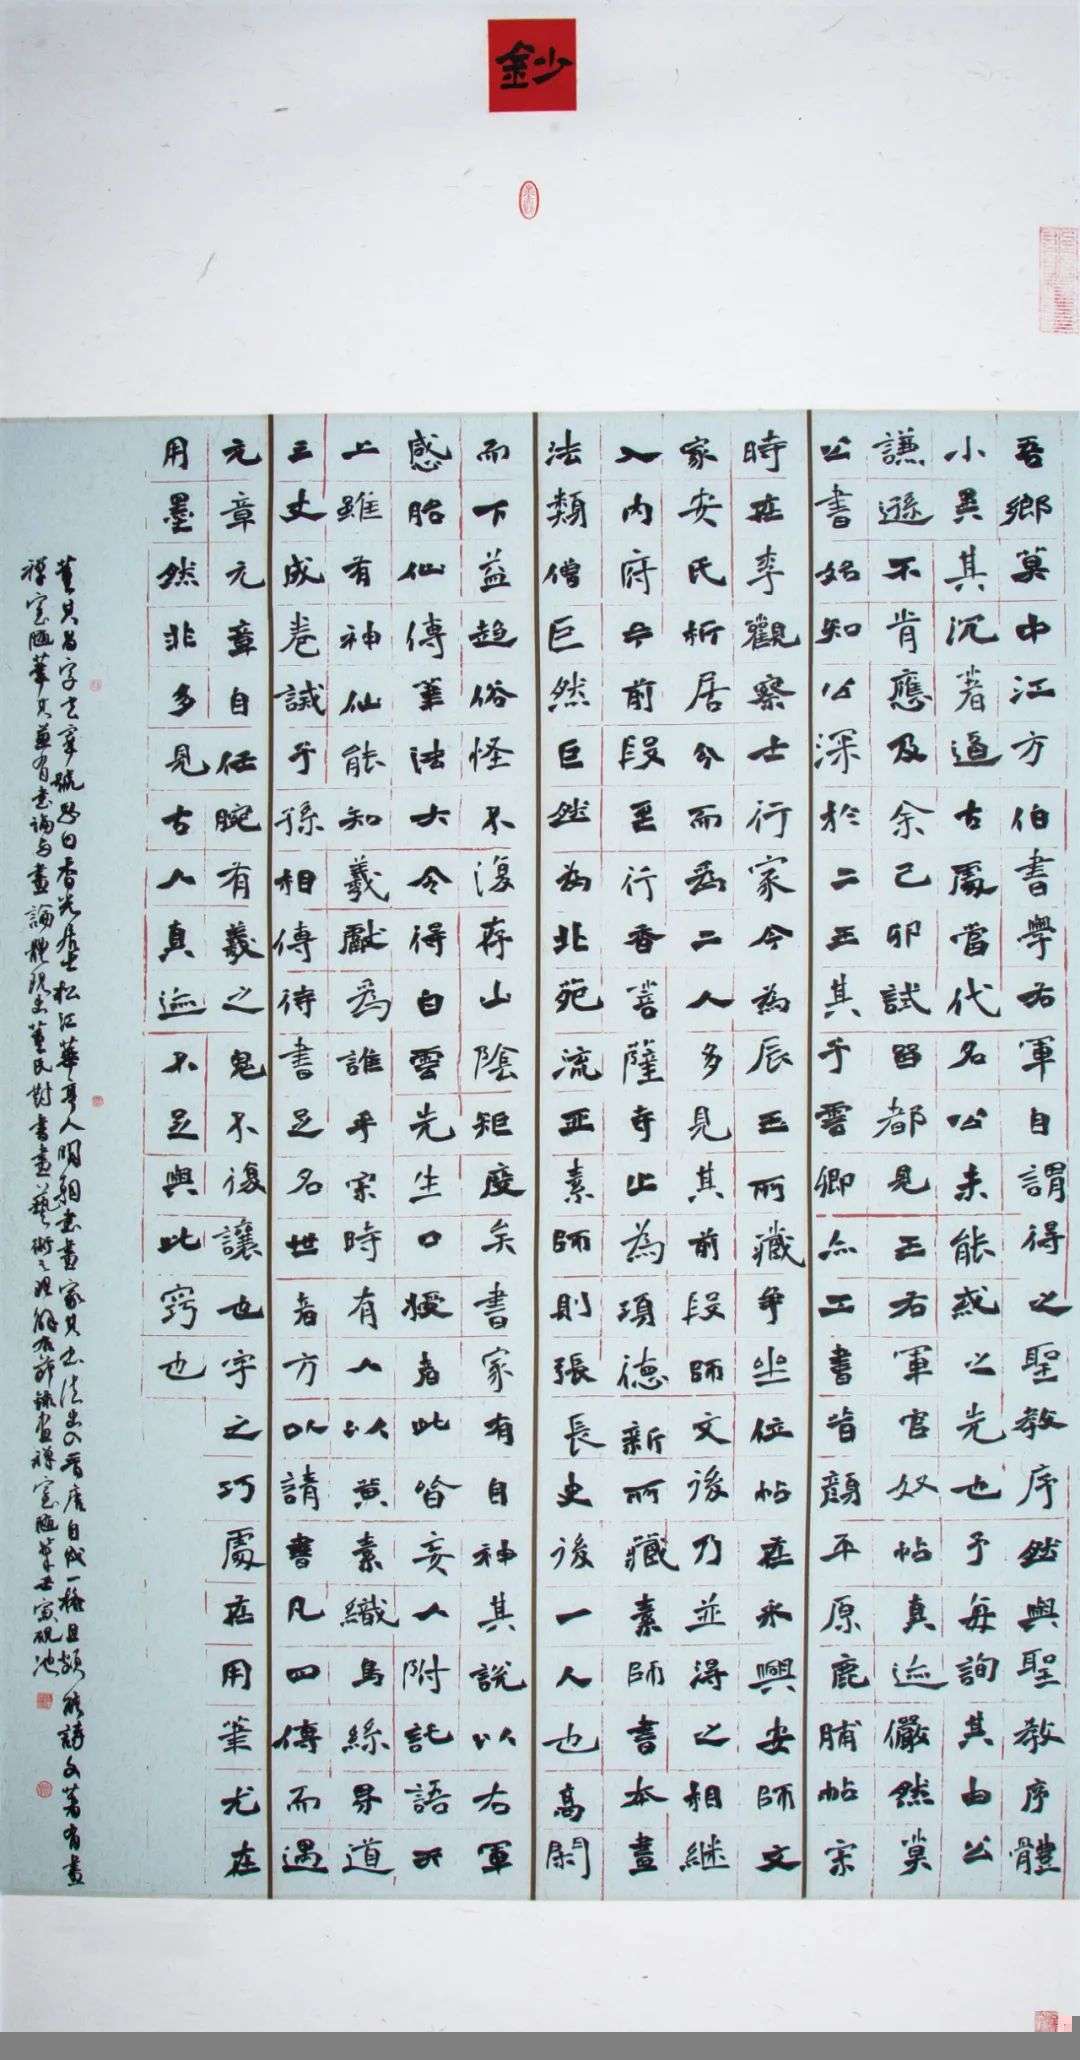 鈔
吾鄉莫中江方伯書學右軍自謂得之聖教序然與聖教序體
小異其沉著逼古處當代名公未能或之先也予每詢其由公
謙遜不肯應及余己卯試留都見王右軍官奴帖真迹儼然莫
公書始知公深於二王其子雲卿亦工書皆顏平原鹿脯帖宋
時在李觀察士行家今為辰玉所藏爭坐位帖在永興安師文
家安氏析居分而為二人多見其前段師文後乃並得之相繼
入內府今前段至行香菩薩寺止為項德新所藏素師書本畫
法類僧巨然巨然為北苑流亞素師則張長史後一人也高閑
而下益趨俗怪不復存山陰矩度矣書家有自神其說以右軍
感胎仙傳筆法大令得白雲先生口授者此皆妄人附託語天
上雖有神仙能知羲獻為誰乎宋時有人以黃素織烏絲界道
三丈成卷誡子孫相傳待書足名世者方以請書凡四傳而遇
元章元章自任腕有羲之鬼不復讓也字之巧處在用筆尤在
用墨然非多見古人真迹不足與此竅也
董其昌字玄宰號思白香光居士松江華亭人明朝書畫家其書法出入晉唐自成一格且頗能詩文著有畫
禪室隨筆其兼有書論與畫論體現出董氏對書畫藝術之理解右節錄畫禪室隨筆 寅硯池